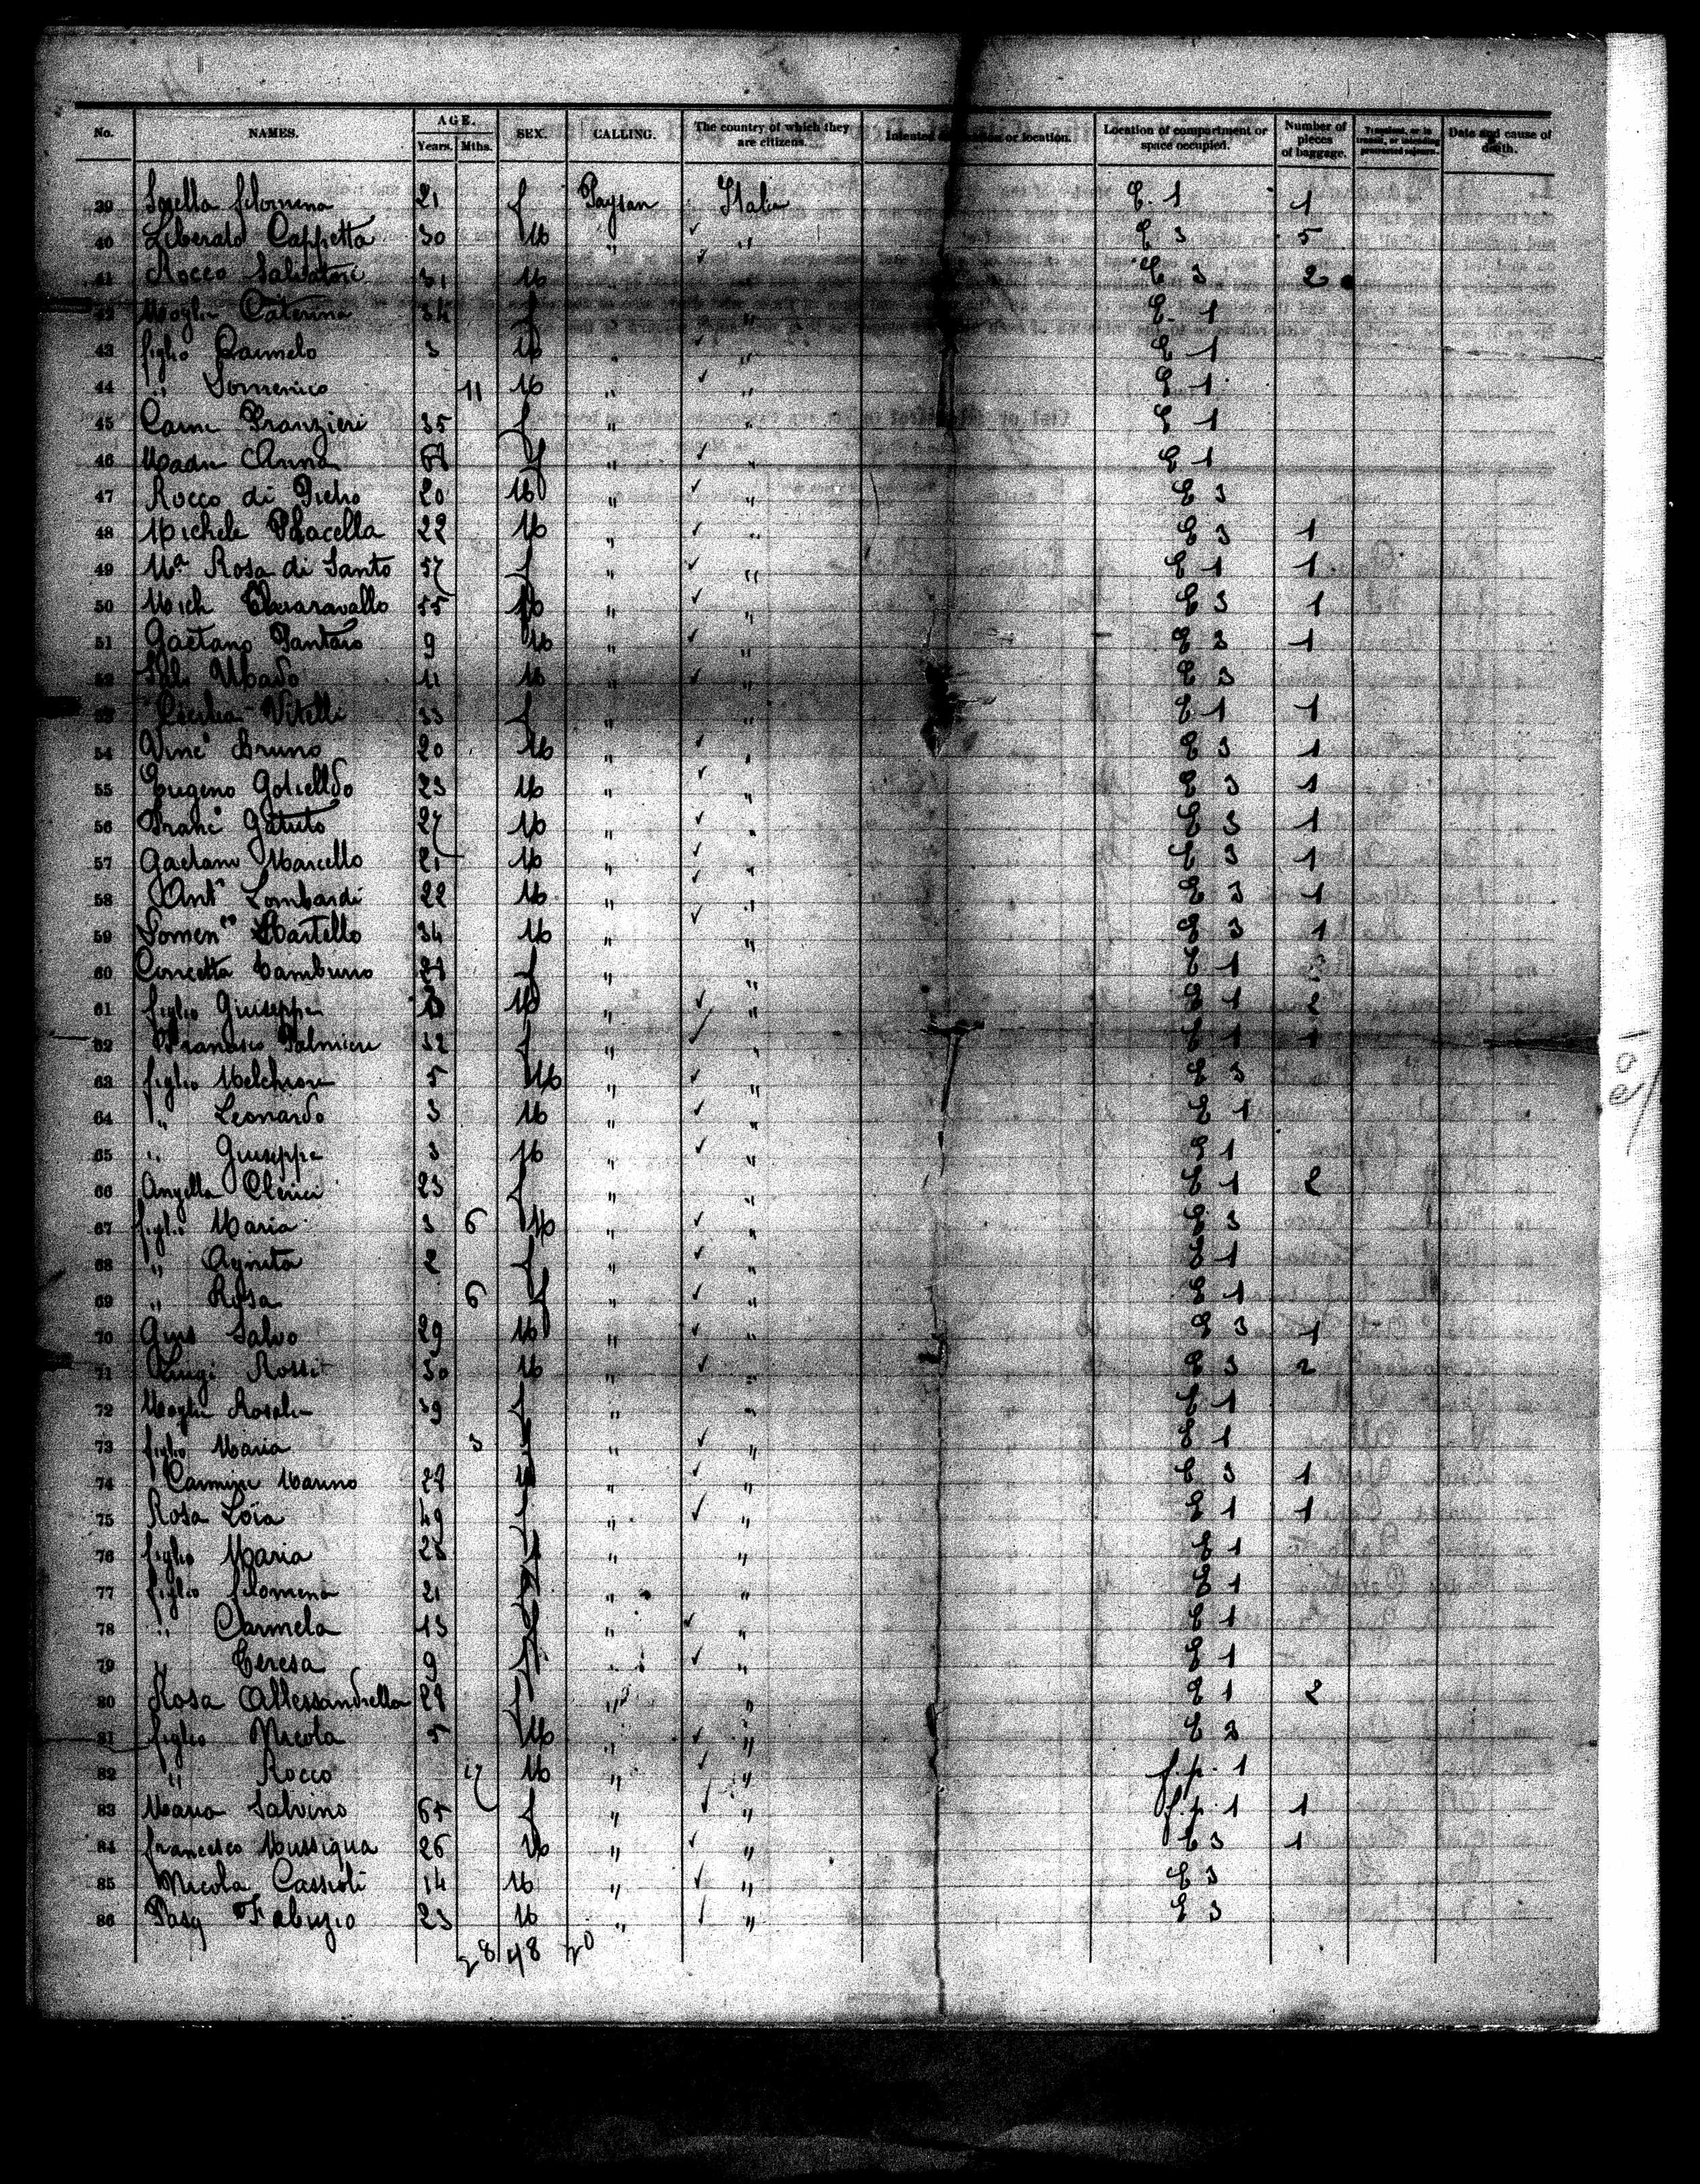 No. NAMES. AGE. Years. Mths. SEX. CALLING. The country of which they are citizens. Intended or location. Location of compartment or space occupied. Number of pieces of baggage. Date and cause of death.
39 filomena 21 f Paysan Italie E. 1 1
40 Liberato Cappetta 30 M " " E 3 5
41 Rocco Salvatore 31 M " " E 3 2
42 Moglie Caterina 34 f " " E. 1
43 figlio Carmelo 3 M " " E 1
44 " Domenico 11 M " " E 1
45 Carm Pranzieri 35 f " " E 1
46 Madre Anna f " " E 1
47 Rocco di Pietro 20 M " " E 3
48 Michele 22 M " " E 3 1
49 Mª Rosa di Santo 57 f " " E 1 1
50 Mich Chiaravallo 55 M " " E 3 1
51 Gaetano Pantaro 9 M " " E 3 1
52 11 M " " E 3
53 Cecilia Vitelli 33 f " " E 1 1
54 Vinc° Bruno 20 M " " E 3 1
55 Eugeno 23 M " " E 3 1
56 Franc° Gatuto 27 M " " E 3 1
57 Gaetano Marcello 21 M " " E 3 1
58 Ant° Lombardi 22 M " " E 3 1
59 Domen°° Martello 34 M " " E 3 1
60 Concetta Tamburro f " " E 1
61 figlio Giuseppe M " " E 1 2
62 Palmieri 32 f " " E 1 1
63 figlio Melchiore 5 M " " E 3
64 " Leonardo 3 M " " E 1
65 " Giuseppe 3 M " " E 1
66 Angella Clerici 23 f " " E 1 2
67 figlio Maria 3 6 M " " E 3
68 " Agnita 2 f " " E 1
69 " Rosa 6 f " " E 1
70 Gius Salvo 29 M " " E 3 1
71 Luigi Rossi 30 M " " E 3 2
72 Moglie Rosalie 39 f " " E 1
73 figlio Maria 3 f " " E 1
74 Carmine Marino M " " E 3 1
75 Rosa Loïa 49 f " " E 1 1
76 figlio Maria 23 f " " E 1
77 figlio filomena 21 f " " E 1
78 " Carmela 13 f " " E 1
79 " Teresa 9 f " " E 1
80 Rosa Allessandrella f " " E 1 2
81 figlio Nicola 5 M " " E 3
82 " Rocco 17 M " " f.p. 1
83 Maria Salvino 65 f " " f.p. 1 1
84 francesco Mussiqua 26 M " " E 3 1
85 Nicola Cassioli 14 M " " E 3
86 Pasq Fabrizio 23 M " " E 3
28 48 20